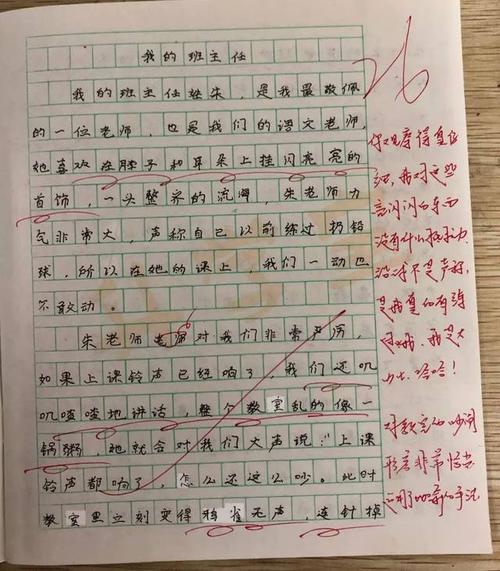 我的班主任
26
我的班主任姓朱，是我最敬佩
的一位老师，也是我们的语文老师，
她喜欢在脖子和耳朵上挂闪亮亮的
首饰，一头整齐的流海，朱老师力
气非常大，声称自己以前练过扔铅
球，所以在她的课上，我们一动也
不敢动。
朱老师老师对我们非常严厉，
如果上课铃声已经响了，我们还叽
叽喳喳地讲话，整个教室乱的像一
锅粥，她就会对我们大声说："上课
铃声都响了，怎么还这么吵。此时
教室里立刻变得鸦雀无声，连针掉
你观察得真仔
细，我对这些
亮闪闪的东西
没有什么抵抗力
没错不是声称，
是我真的有得
过奖，我是大
力士，哈哈！
对教室的吵闹
形容非常恰当
运用了比喻的手法